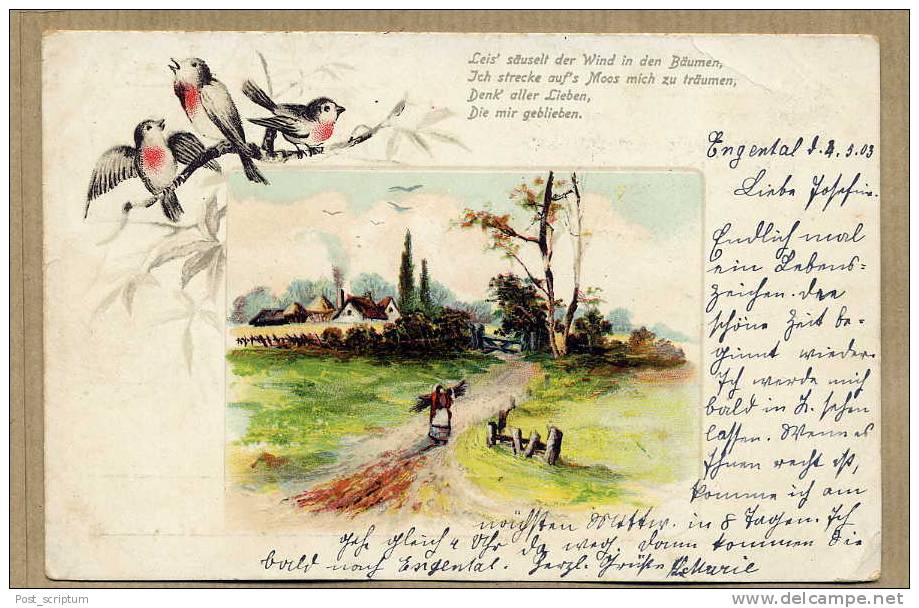 Leis' säuselt der Wind in den Bäumen,
Ich strecke auf's Moos mich zu träumen,
Denk' aller Lieben,
Die mir geblieben.
Engental d. 4. 5. 03
Liebe Josefin.
Endlich mal
ein Lebens=
zeichen. Die
schöne Zeit be=
ginnt wieder.
Ich werde mich
bald in K. sehen
lassen. Wenn es
Ihnen recht ist,
komme ich am
nächsten Mittw. in 8 Tagen. Ich
gehe gleich 4 Uhr da weg, dann kommen Sie
bald nach Engental. Herzl. Grüße Marie
Post_scriptum
www.delcampe.net